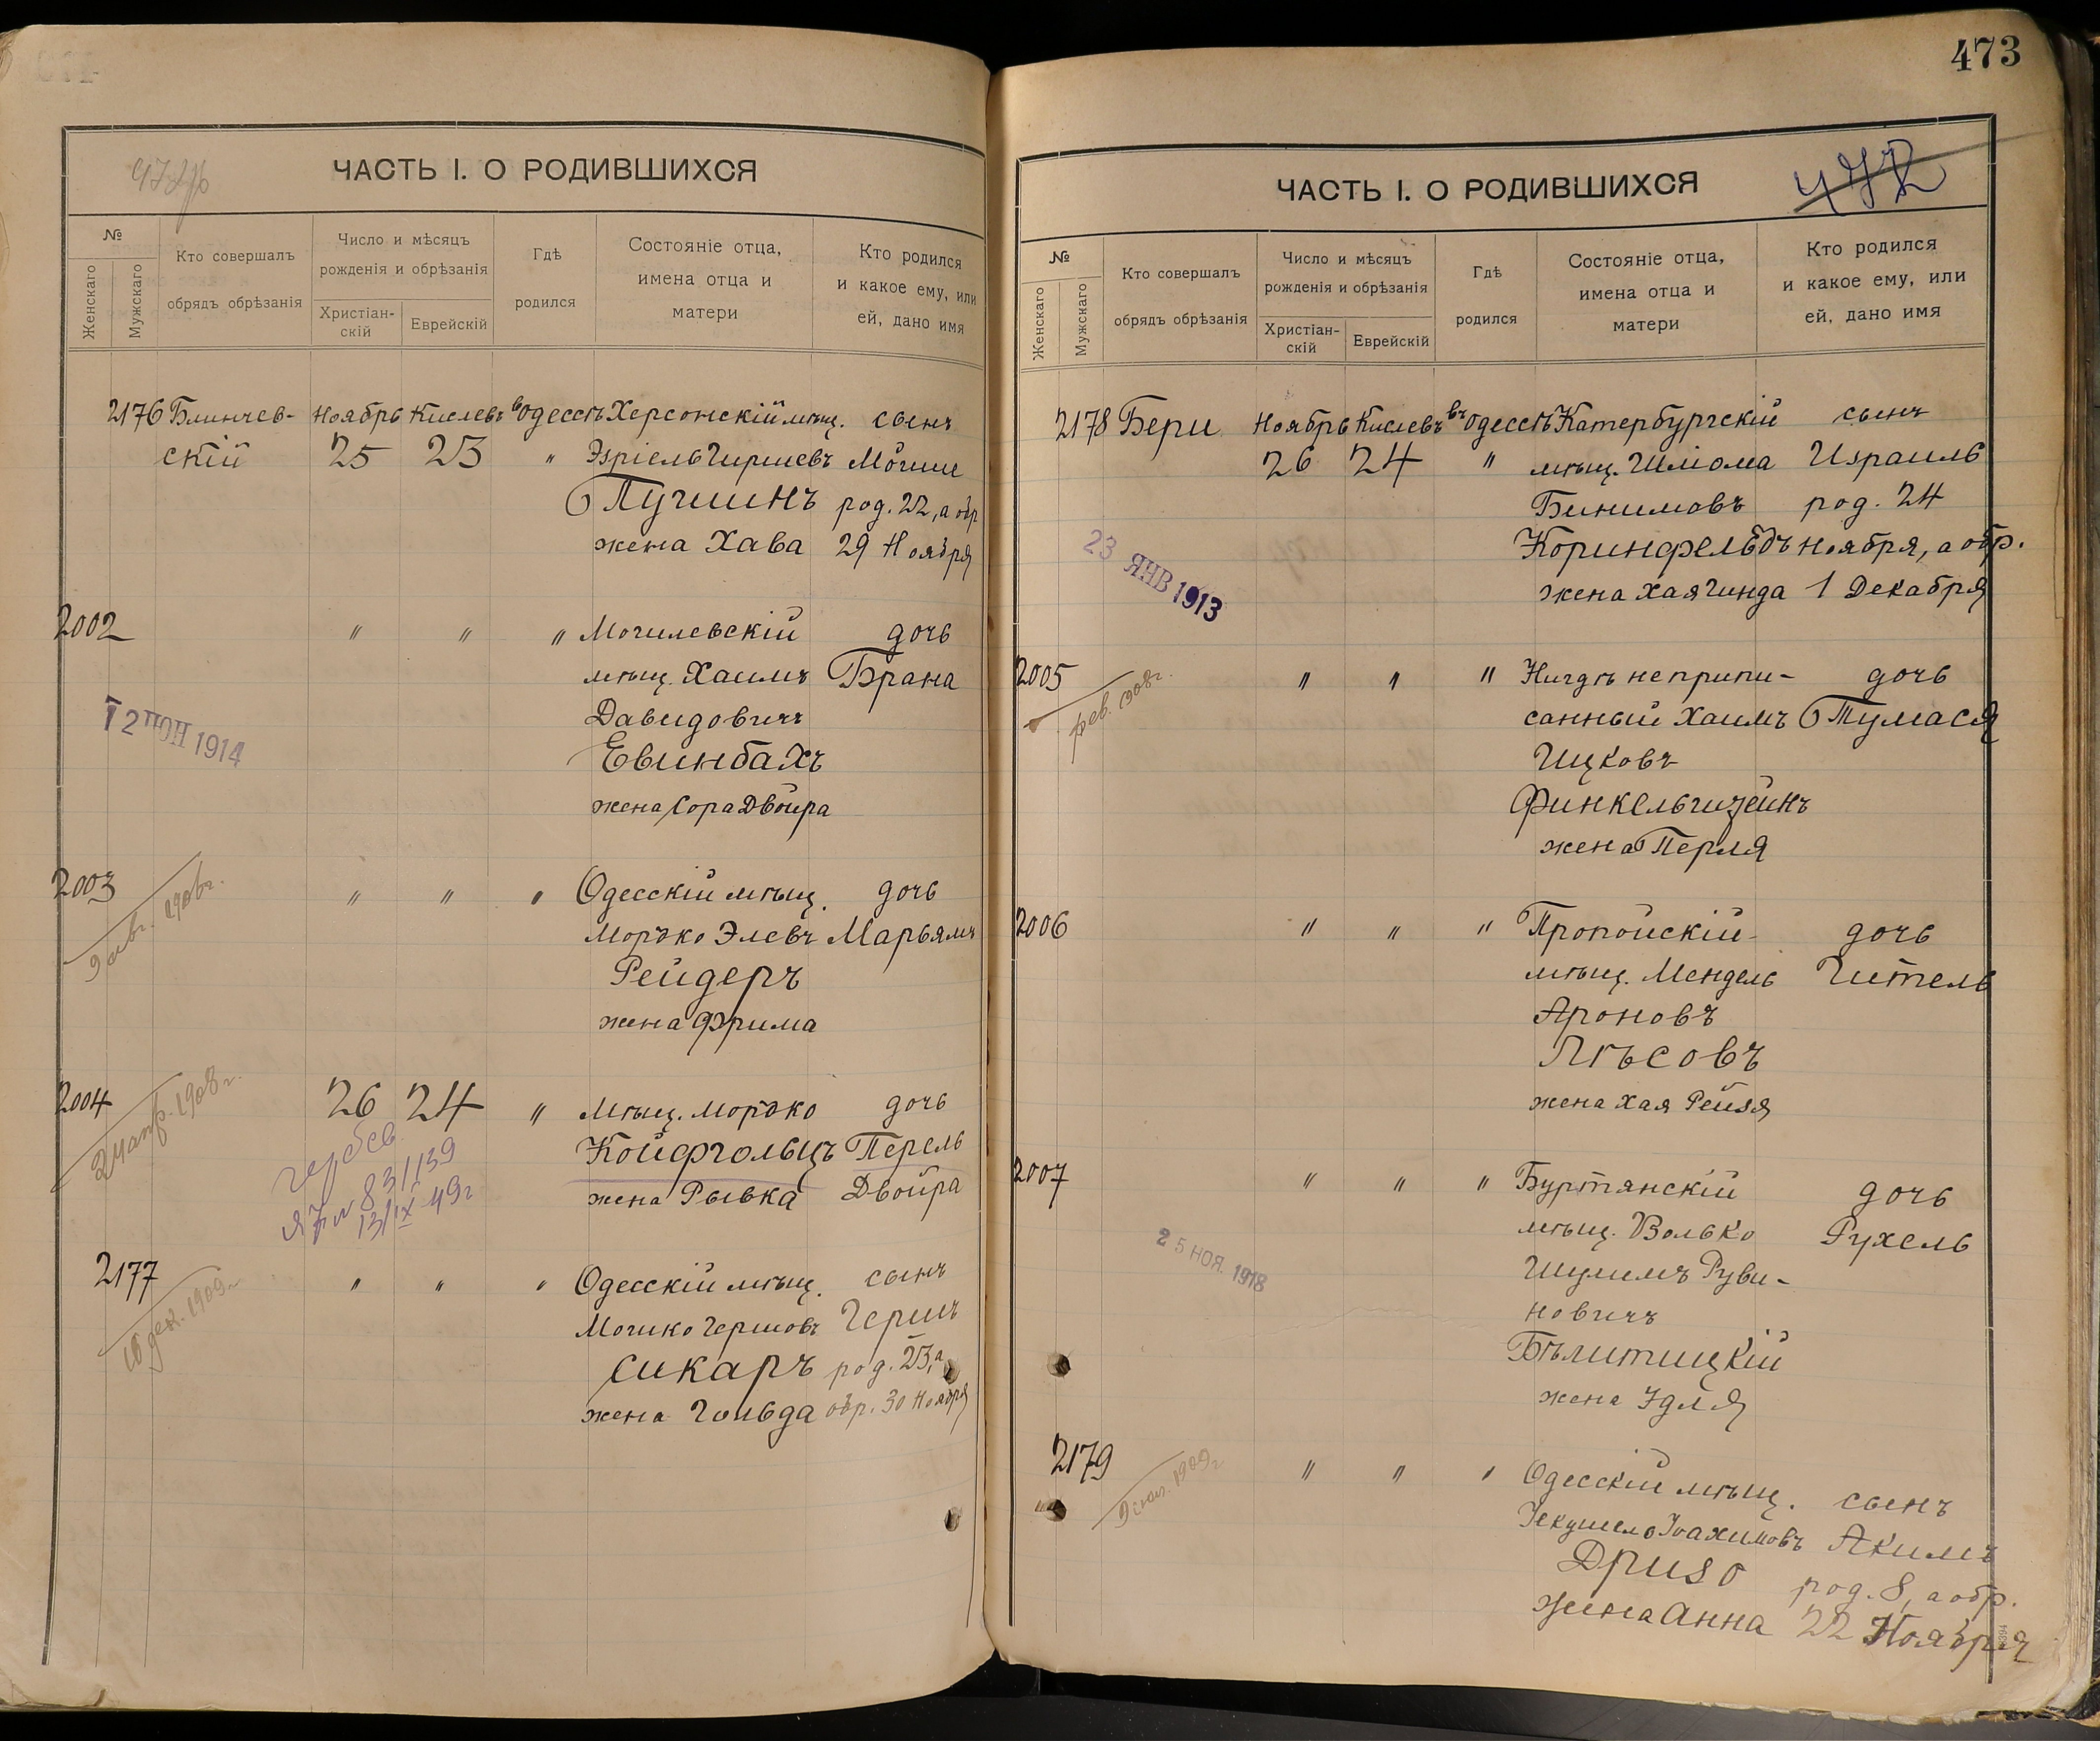 ЧАСТЬ I. О РОДИВШИХСЯ
№
Женскаго
Мужскаго
Кто совершалъ
обрядъ обрѣзанія
Число и мѣсяцъ
рожденія и обрѣзанія
Христіан-
скій
Еврейскій
Гдѣ
родился
Состояніе отца,
имена отца и
матери
Кто родился
и какое ему, или
ей, дано имя
2176 Блинчев- Ноябрь Кислевъ въ Одессѣ Херсонскій мѣщ. сынъ
скій 25 23 " Эзріель Гиршевъ Мойше
Пучшинъ род. 22, а обр
жена Хава 29 Ноября
2002 " " " Могилевскій дочь
мѣщ. Хаимъ Брана
Давидовичъ
12 ІЮН 1914
Евинбахъ
жена Сора Двойра
2003 " " " Одесскій мѣщ. дочь
1906г.
Мордко Элевъ Марьямъ
Рейдеръ
жена Фрима
2004 26 24 " Мѣщ. Мордко дочь
24 апр. 1908 г.
Койфгольцъ Перель
жена Рывка Двойра
831139
13/IX 49г
2177 " " " Одесскій мѣщ. сынъ
16 дек. 1909г.
Мошко Гершовъ Гершъ
Сикаръ род. 23, а
жена Гольда обр. 30 Ноября
473
ЧАСТЬ I. О РОДИВШИХСЯ
472
№
Женскаго
Мужскаго
Кто совершалъ
обрядъ обрѣзанія
Число и мѣсяцъ
рожденія и обрѣзанія
Христіан-
скій
Еврейскій
Гдѣ
родился
Состояніе отца,
имена отца и
матери
Кто родился
и какое ему, или
ей, дано имя
2178 Бери Ноябрь Кислевъ въ Одессѣ Катербургскій сынъ
26 24 " мѣщ. Шліома Израиль
Бинимовъ род. 24
Коринфельдъ ноября, а обр.
23 ЯНВ 1913
жена Хая Гинда 1 Декабря
2005 " " " Нигдѣ не припи- дочь
фев. 1908г.
санный Хаимъ Тумася
Ицковъ
Финкельштейнъ
жена Перля
2006 " " " Пропойскій дочь
мѣщ. Мендель Гитель
Ароновъ
Лѣсовъ
жена Хая Рейзя
2007 " " " Буртянскій дочь
мѣщ. Волько Рухель
25 НОЯ. 1918
Шулимъ Руви-
новичъ
Бѣлитицкій
жена Удля
2179 " " " Одесскій мѣщ. сынъ
1909г
Іекушель Іоахимовъ Акимъ
Дризо род. 8, а обр.
жена Анна 22 Ноября